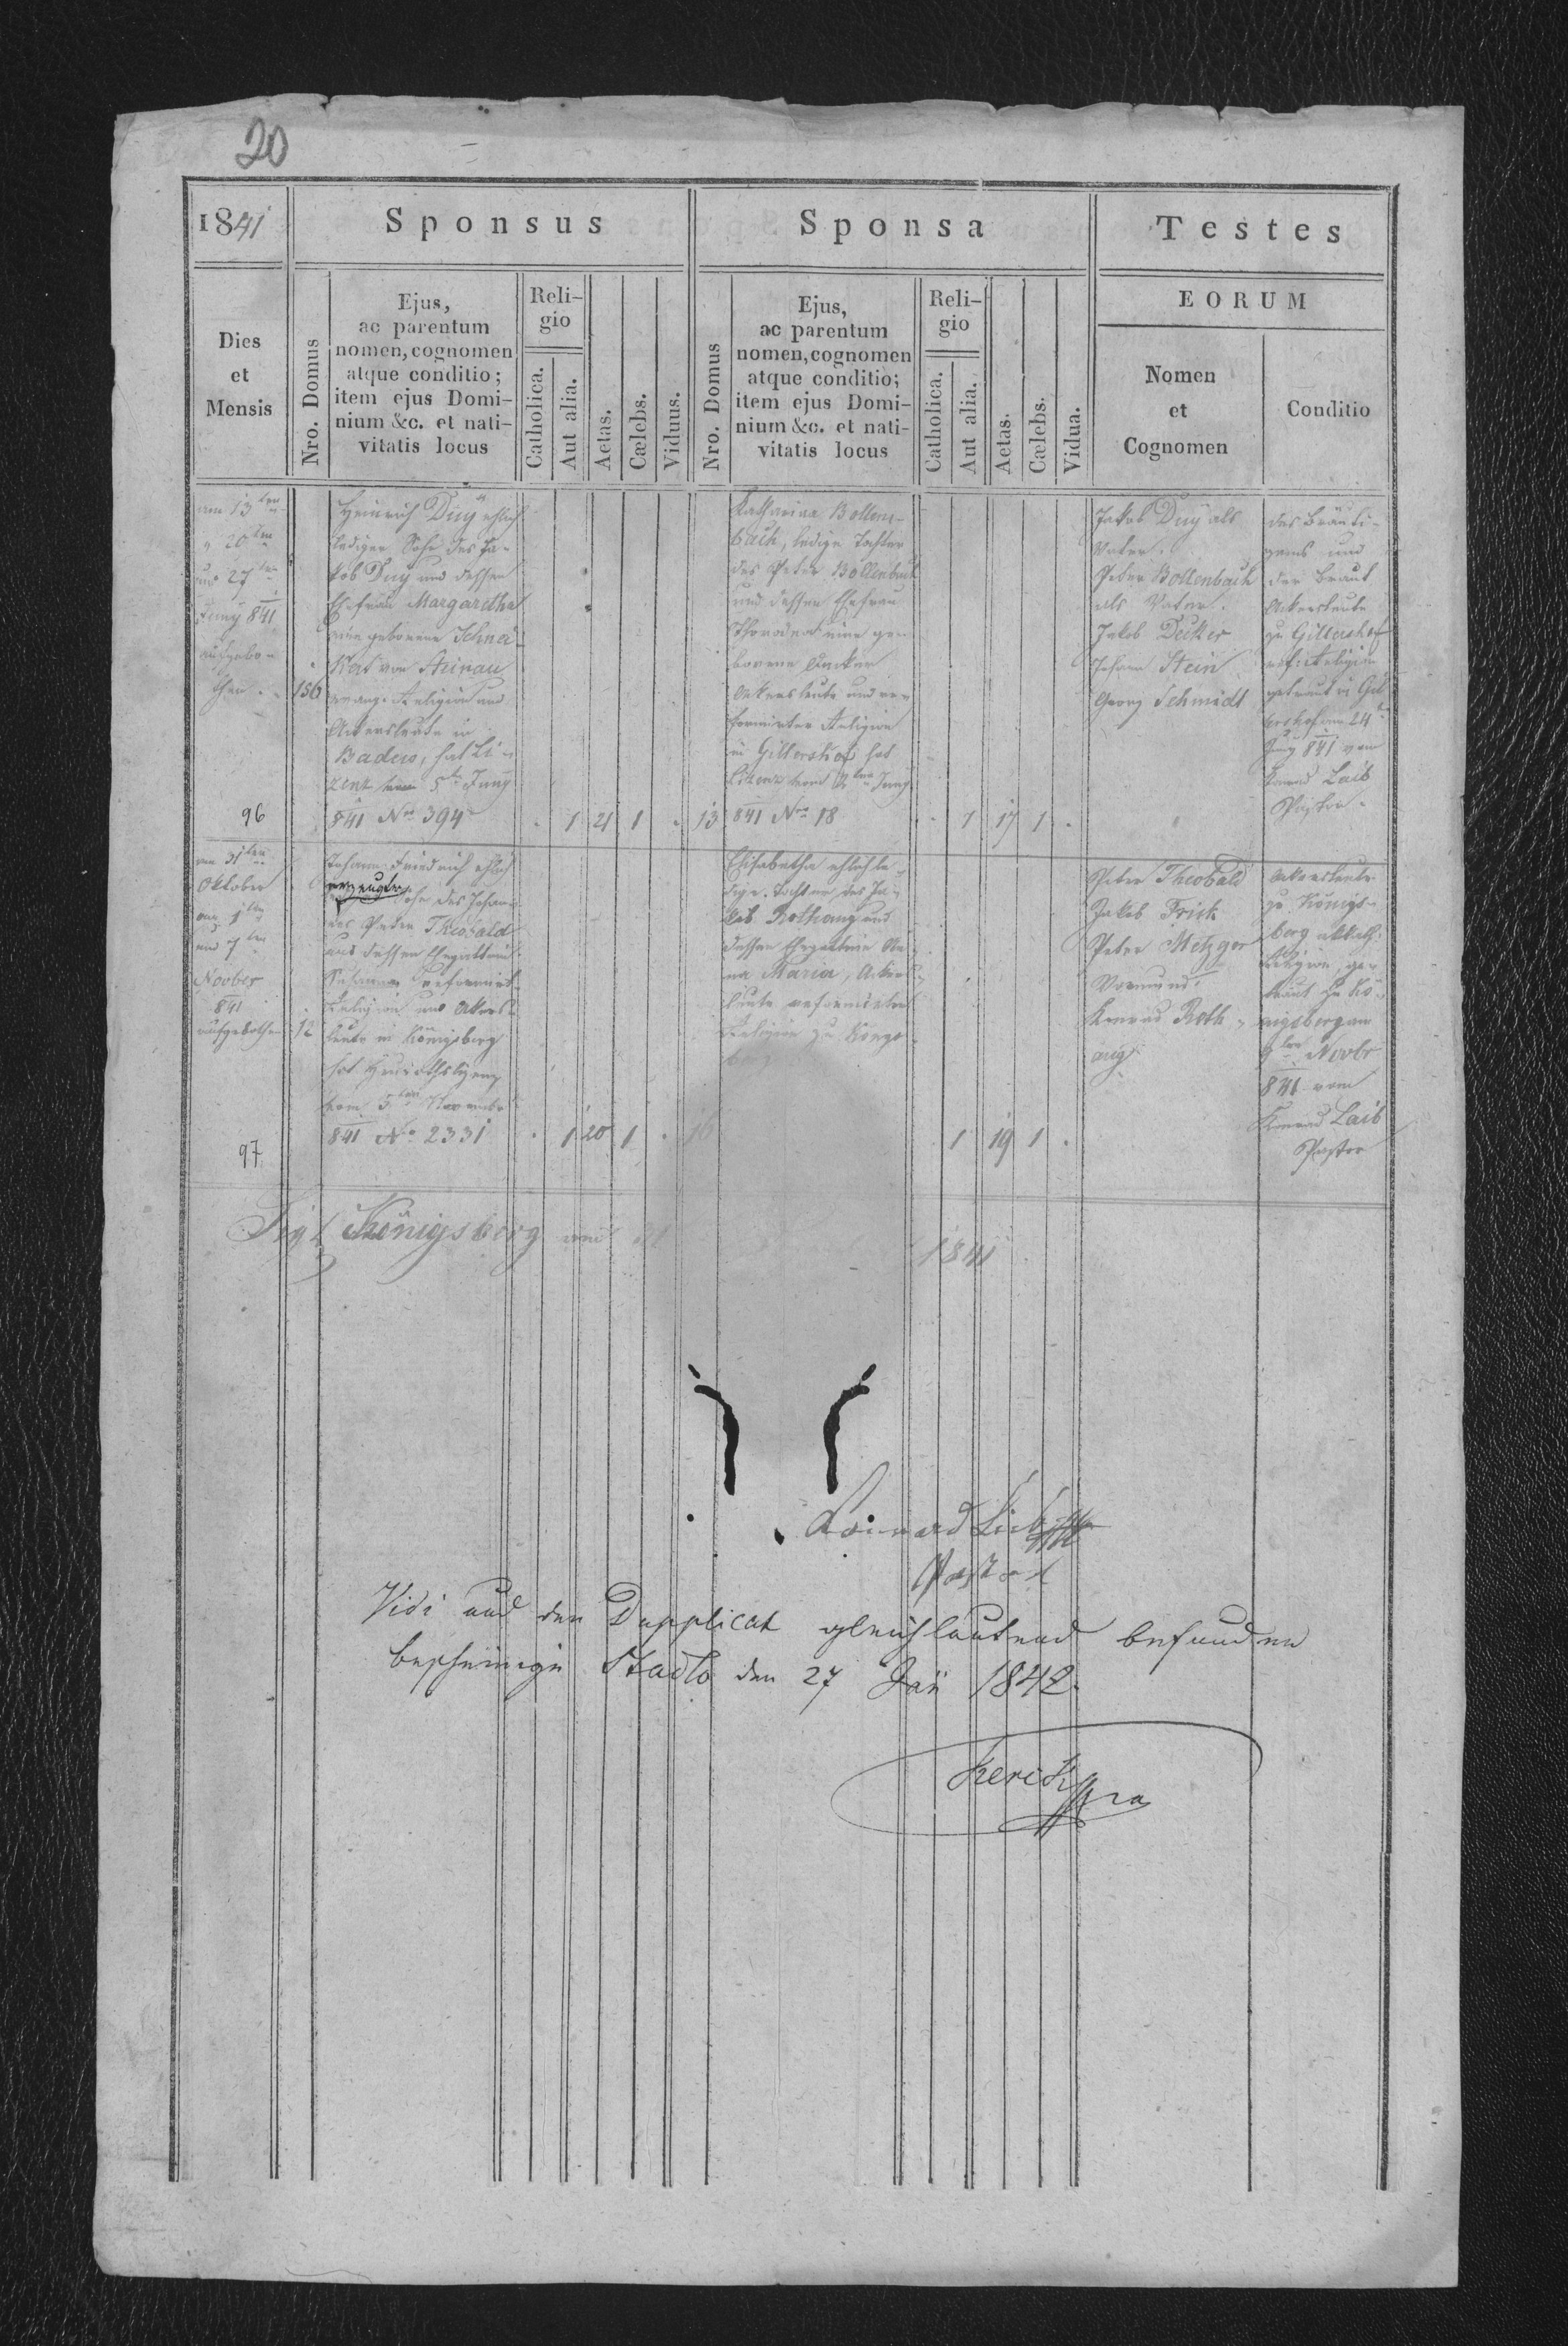 20
1841
Sponsus
Sponsa
Testes
Dies
et
Mensis
Nro. Domus
Ejus,
ac parentum
nomen, cognomen
atque conditio;
item ejus Domi-
nium &c. et nati-
vitatis locus
Reli-
gio
Catholica.
Aut alia.
Aetas.
Cælebs.
Viduus.
Nro. Domus
Ejus,
ac parentum
nomen, cognomen
atque conditio;
item ejus Domi-
nium &c. et nati-
vitatis locus
Reli-
gio
Catholica.
Aut alia.
Aetas.
Cælebs.
Vidua.
EORUM
Nomen
et
Cognomen
Conditio
am 13ten
" 20ten
und 27ten
Juny 841
aufgebo-
then.
96
156
Heinrich Duy ehlich
lediger Sohn des Ja-
kob Duy und dessen
Ehefrau Margaretha
eine geborene Schnei-
von Steinau
evang. Religion und
Ackersleute in
Badeio, hat Li-
zenz vom 5ten Juny
841 No 394
1 21 1
13
Katharina Bollen-
bach, ledige Tochter
des Peter Bollenbach
und dessen Ehefrau
eine ge-
borene
Ackersleute und re-
formirter Religion
in Gillershof hat
Lizenz vom Juny
841 No 18
1 17 1
Jakob Duy als
Vater.
Peter Bollenbach
als Vater.
Jakob Decker
Johann Stein
Georg Schmidt
des Bräuti-
gams und
der Braut
Ackersleute
zu Gillershof
ref: Religion
getraut in Gil-
lershof am 24ten
Juny 841 vom
Konrad Laib
Pastor.
am 31ten
Oktober
am 1ten
und 7ten
Novber
841
aufgebothen
97
12
Johann Friedrich ehlich
erzeugter
Sohn des Johann
des Peter Theobald
und dessen Ehegattin
Susanna reformirt
Religion und Ackers-
leute in Königsberg
hat Heirathslizenz
vom 5ten November
841 No 2331
1 20 1
16
Elisabetha ehliche le-
dige Tochter des Ja-
kob Rothaug und
dessen Ehegattin An-
na Maria, Ackers-
leute reformirter
Religion zu Königs-
berg
1 19 1
Peter Theobald
Jakob Frick
Peter Metzger
Vormund.
Konrad Roth-
aug
Ackersleute
zu Königs-
berg akkath:
Religion, ge-
traut zu Kö-
nigsberg am
9ten Novbr
841 vom
Konrad Laib
Pastor
Sigl Königsberg am 1841
Konrad Laib
Pastor
Vidi und den Dupplicat gleichlautend befunden
bescheinige Stadlo den 27 Jän 1842.